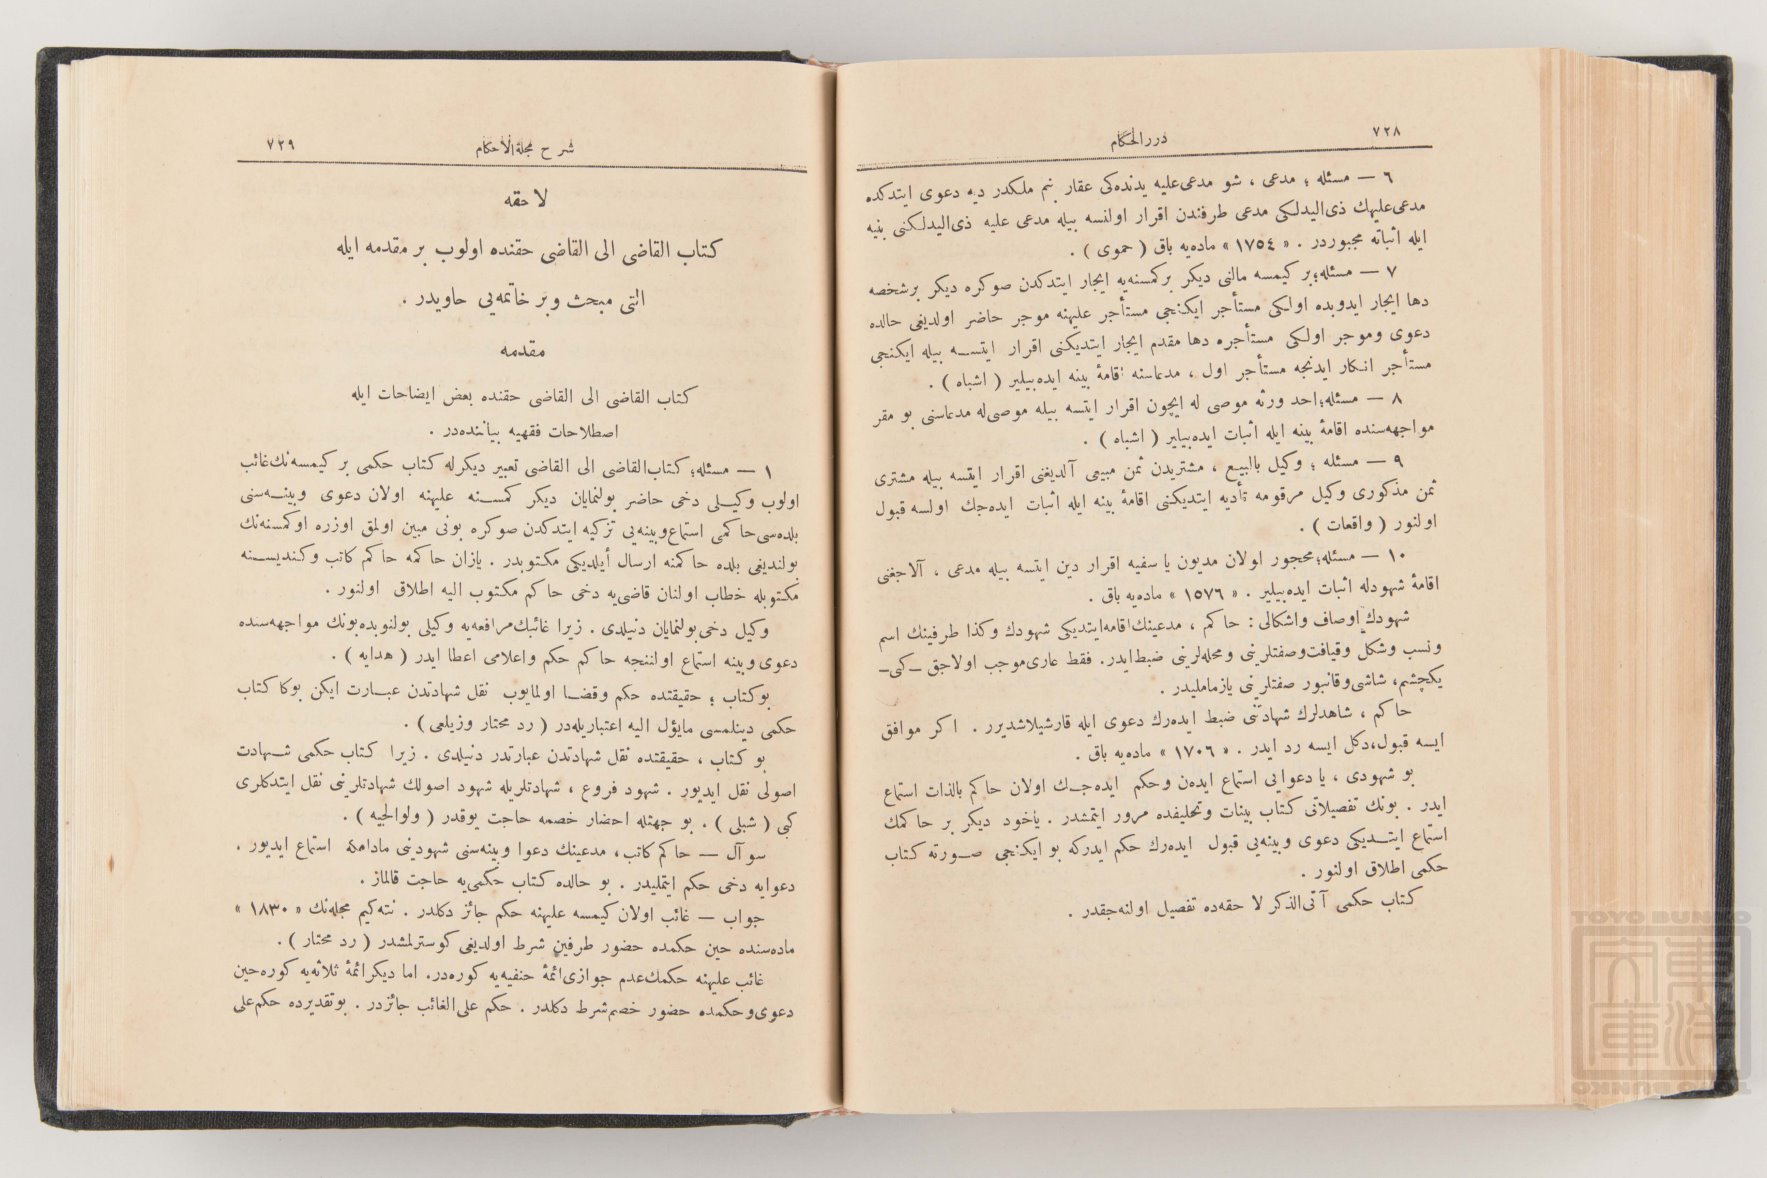 ٧٢٨
دررالحكام
٦ — مسئله ؛ مدعی ، شو مدعی‌علیه یدنده‌کی عقار بنم ملکدر دیه دعوی ایتدکده
مدعی‌علیهك ذی‌الیدلکی مدعی طرفندن اقرار اولنسه بیله مدعی علیه ذی‌الیدلکنی بینه
ایله اثباته مجبوردر . « ١٧٥٤ » ماده‌یه باق ( حموی ) .
٧ — مسئله؛بر کیمسه مالنی دیکر برکمسنه‌یه ایجار ایتدکدن صوکره دیکر برشخصه
دها ایجار ایدوبده اولکی مستأجر ایکنجی مستأجر علیهنه موجر حاضر اولدیغی حالده
دعوی وموجر اولکی مستأجره دها مقدم ایجار ایتدیکنی اقرار ایتسه بیله ایکنجی
مستأجر انکار ایدنجه مستأجر اول ، مدعاسنه اقامۀ بینه ایده‌بیلیر ( اشباه ) .
٨ — مسئله؛احد ورثه موصی له ایچون اقرار ایتسه بیله موصی‌له مدعاسنی بو مقر
مواجهه‌سنده اقامۀ بینه ایله اثبات ایده‌بیلیر ( اشباه ) .
٩ — مسئله ؛ وکیل بالبیع ، مشتریدن ثمن مبیعی آلدیغنی اقرار ایتسه بیله مشتری
ثمن مذکوری وکیل مرقومه تأدیه ایتدیکنی اقامۀ بینه ایله اثبات ایده‌جك اولسه قبول
اولنور ( واقعات ) .
١٠ — مسئله؛محجور اولان مدیون یا سفیه اقرار دین ایتسه بیله مدعی ، آلاجغنی
اقامۀ شهودله اثبات ایده‌بیلیر . « ١٥٧٦ » ماده‌یه باق .
شهودك اوصاف واشکالی : حاکم ، مدعینك‌اقامه‌ایتدیکی شهودك وکذا طرفینك اسم
ونسب وشکل وقیافت‌وصفتلرینی ومحله‌لرینی ضبط‌ایدر. فقط عاری‌موجب اولاجق ـ کی ـ
یکچشم، شاشی‌وقانبور صفتلرینی یازمامليدر .
حاکم ، شاهدلرك شهادتنی ضبط ایده‌رك دعوی ایله قارشیلاشدیرر . اکر موافق
ایسه قبول،دکل ایسه رد ایدر . « ١٧٠٦ » ماده‌یه باق .
بو شهودی ، یا دعوایی استماع ایده‌ن وحکم ایده‌جك اولان حاکم بالذات استماع
ایدر . بونك تفصیلاتی کتاب بینات وتحلیفده مرور ایتمشدر . یاخود دیکر بر حاکمك
استماع ایتدیکی دعوی وبینه‌یی قبول ایده‌رك حکم ایدرکه بو ایکنجی صورته کتاب
حکمی اطلاق اولنور .
کتاب حکمی آتی‌الذکر لاحقه‌ده تفصیل اولنه‌جقدر .
شرح مجلة الاحکام
٧٢٩
لاحقه
کتاب القاضی الی القاضی حقنده اولوب بر مقدمه ایله
التی مبحث وبر خاتمه‌یی حاویدر .
مقدمه
کتاب القاضی الی القاضی حقنده بعض ایضاحات ایله
اصطلاحات فقهیه بیاننده‌در .
١ — مسئله؛ کتاب‌القاضی الی القاضی تعبیر دیکرله کتاب حکمی بر کیمسه‌نك‌غائب
اولوب وکیلی دخی حاضر بولنمایان دیکر کمسنه علیهنه اولان دعوی وبینه‌سنی
بلده‌سی‌حاکمی استماع‌وبینه‌یی تزکیه ایتدکدن صوکره بونی مبین اولمق اوزره اوکمسنه‌نك
بولندیغی بلده حاکمنه ارسال أیلدیکی مکتوبدر . یازان حاکمه حاکم کاتب وکندیسنه
مکتوبله خطاب اولنان قاضی‌یه دخی حاکم مکتوب الیه اطلاق اولنور .
وکیل دخی‌بولنمایان دنیلدی . زیرا غائبك‌مرافعه‌یه وکیلی بولنوبده‌بونك مواجهه‌سنده
دعوی وبینه استماع اولننجه حاکم حکم واعلامی اعطا ایدر ( هدایه ) .
بوکتاب ؛ حقیقتده حکم وقضا اولمایوب نقل شهادتدن عبارت ایکن بوکا کتاب
حکمی دینلمسی مایؤل الیه اعتباریله‌در ( رد محتار وزیلعی ) .
بو کتاب ، حقیقتده نقل شهادتدن عبارتدر دنیلدی . زیرا کتاب حکمی شهادت
اصولی نقل ایدیور . شهود فروع ، شهادتلریله شهود اصولك شهادتلرینی نقل ایتدکلری
کبی ( شبلی ) . بو جهتله احضار خصمه حاجت یوقدر ( ولوالجیه ) .
سوآل — حاکم کاتب، مدعینك دعوا وبینه‌سنی شهودینی مادامکه استماع ایدیور .
دعوایه دخی حکم ایتملیدر . بو حالده کتاب حکمی‌یه حاجت قالماز .
جواب — غائب اولان کیمسه علیهنه حکم جائز دکلدر . نته‌کیم مجله‌نك « ١٨٣٠ »
ماده‌سنده حین حکمده حضور طرفین شرط اولدیغی کوسترلمشدر ( رد محتار ) .
غائب علیهنه حکمك‌عدم جوازی‌ائمۀ حنفیه‌یه کوره‌در. اما دیکرائمۀ ثلاثه‌یه کوره‌حین
دعوی‌وحکمده حضور خصم‌شرط دکلدر . حکم علی‌الغائب جائزدر . بوتقدیرده حکم‌علی
TOYO BUNKO
東洋文庫
TOYO BUNKO